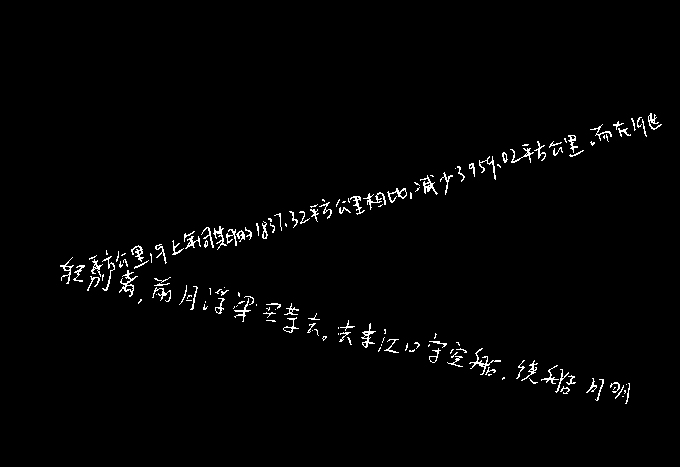 平方公里,与上年同期的1837.32平方公里相比,减少3959.02平方公里。而在19世
轻别离,前月浮梁买茶去。去来江口守空船,绕船月明